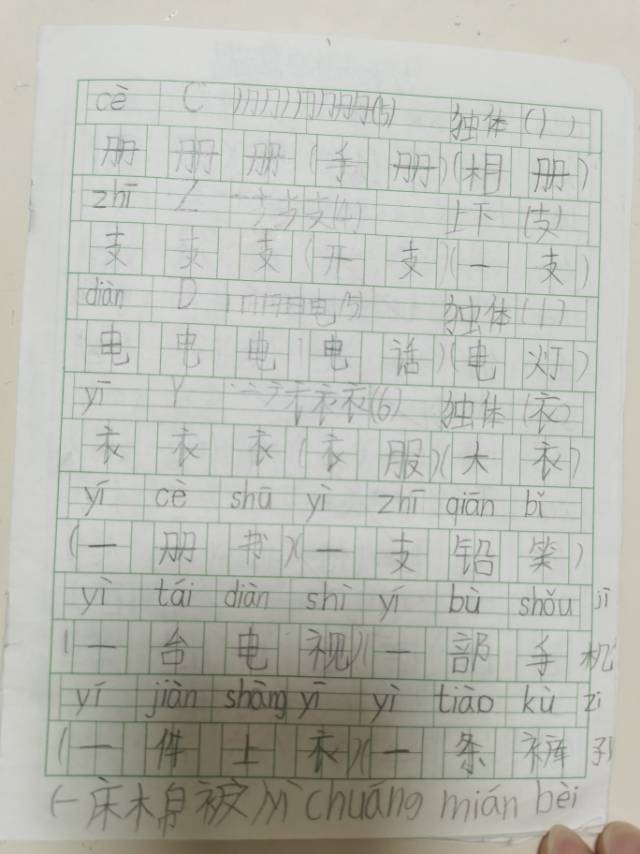 cè C 册(5) 独体 ( )
册 册 册 (手 册)(相 册)
zhī Z 一 十 支 支(4) 上下 (支)
支 支 支 (开 支)(一 支)
diàn D 电(5) 独体 ( )
电 电 电 (电 话)(电 灯)
yī Y 衣(6) 独体 (衣)
衣 衣 衣 (衣 服)(大 衣)
yí cè shū yì zhī qiān bǐ
(一 册 书)(一 支 铅 笔)
yì tái diàn shì yí bù shǒu jī
(一 台 电 视)(一 部 手 机
yí jiàn shàng yī yì tiào kù zi
(一 件 上 衣)(一 条 裤 子)
(一床棉被) yì chuáng mián bèi